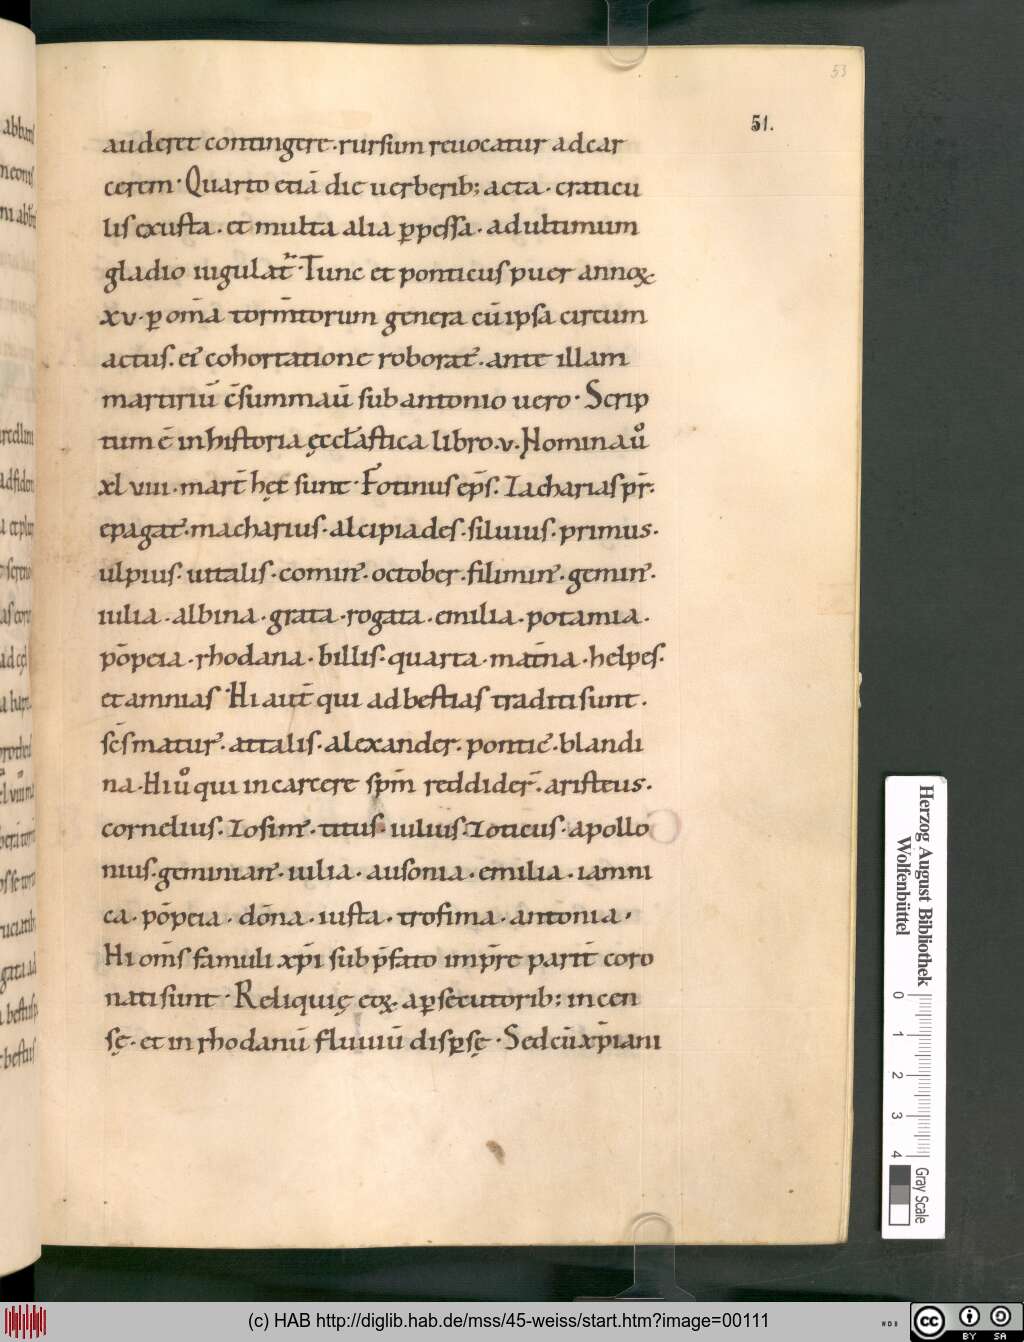 53
51.
auderet contingere · rursum reuocatur ad car
cerem · Quarto etiā die uerberib; acta · craticu
lis exusta · et multa alia ꝑpessa · ad ultimum
gladio iugulat᷑ · Tunc et ponticus puer annoꝝ
xv · ꝑ om̄a torm̄torum genera cū ipsa circum
actus · ei᷒ cohortatione roborat᷒ · ante illam
martiriū c̄summauͭ sub antonio uero · Scrip
tum ē in historia ęccl̄astica libro · v · Nomina uͦ
xl viii · mart̄ hęc sunt · Fotinus ep̄s · Zacharias pr̄ ·
epagat᷒ · macharius · alcipiades · siluius · primus ·
ulpius · uitalis · comin᷒ · october · filimin᷒ · gemin᷒ ·
iulia · albina · grata · rogata · emilia · potamia ·
pōpeia · rhodana · biblis · quarta · mat̄na · helpes ·
et amnias · Hi aut̄ qui ad bestias traditi sunt ·
sc̄s matur᷒ · attalis · alexander · pontic᷒ · blandi
na · Hi uͦ qui in carcere sp̄m reddider̄ · aristeus ·
cornelius · Zosim᷒ · titus · iulius · Zoticus · apollo
nius · geminian᷒ · iulia · ausonia · emilia · iamni
ca · pōpeia · dōna · iusta · trofima · antonia ·
Hi om̄s famuli xp̄i sub p̄fato imp̄re parit̄ coro
nati sunt · Reliquię eoꝝ · a ꝑsecutorib; incen
sę · et in rhodanū fluuiū disꝑsę · Sed cū xp̄iani
Herzog August Bibliothek
Wolfenbüttel
0 1 2 3 4
Gray Scale
(c) HAB http://diglib.hab.de/mss/45-weiss/start.htm?image=00111
WDB
cc BY SA